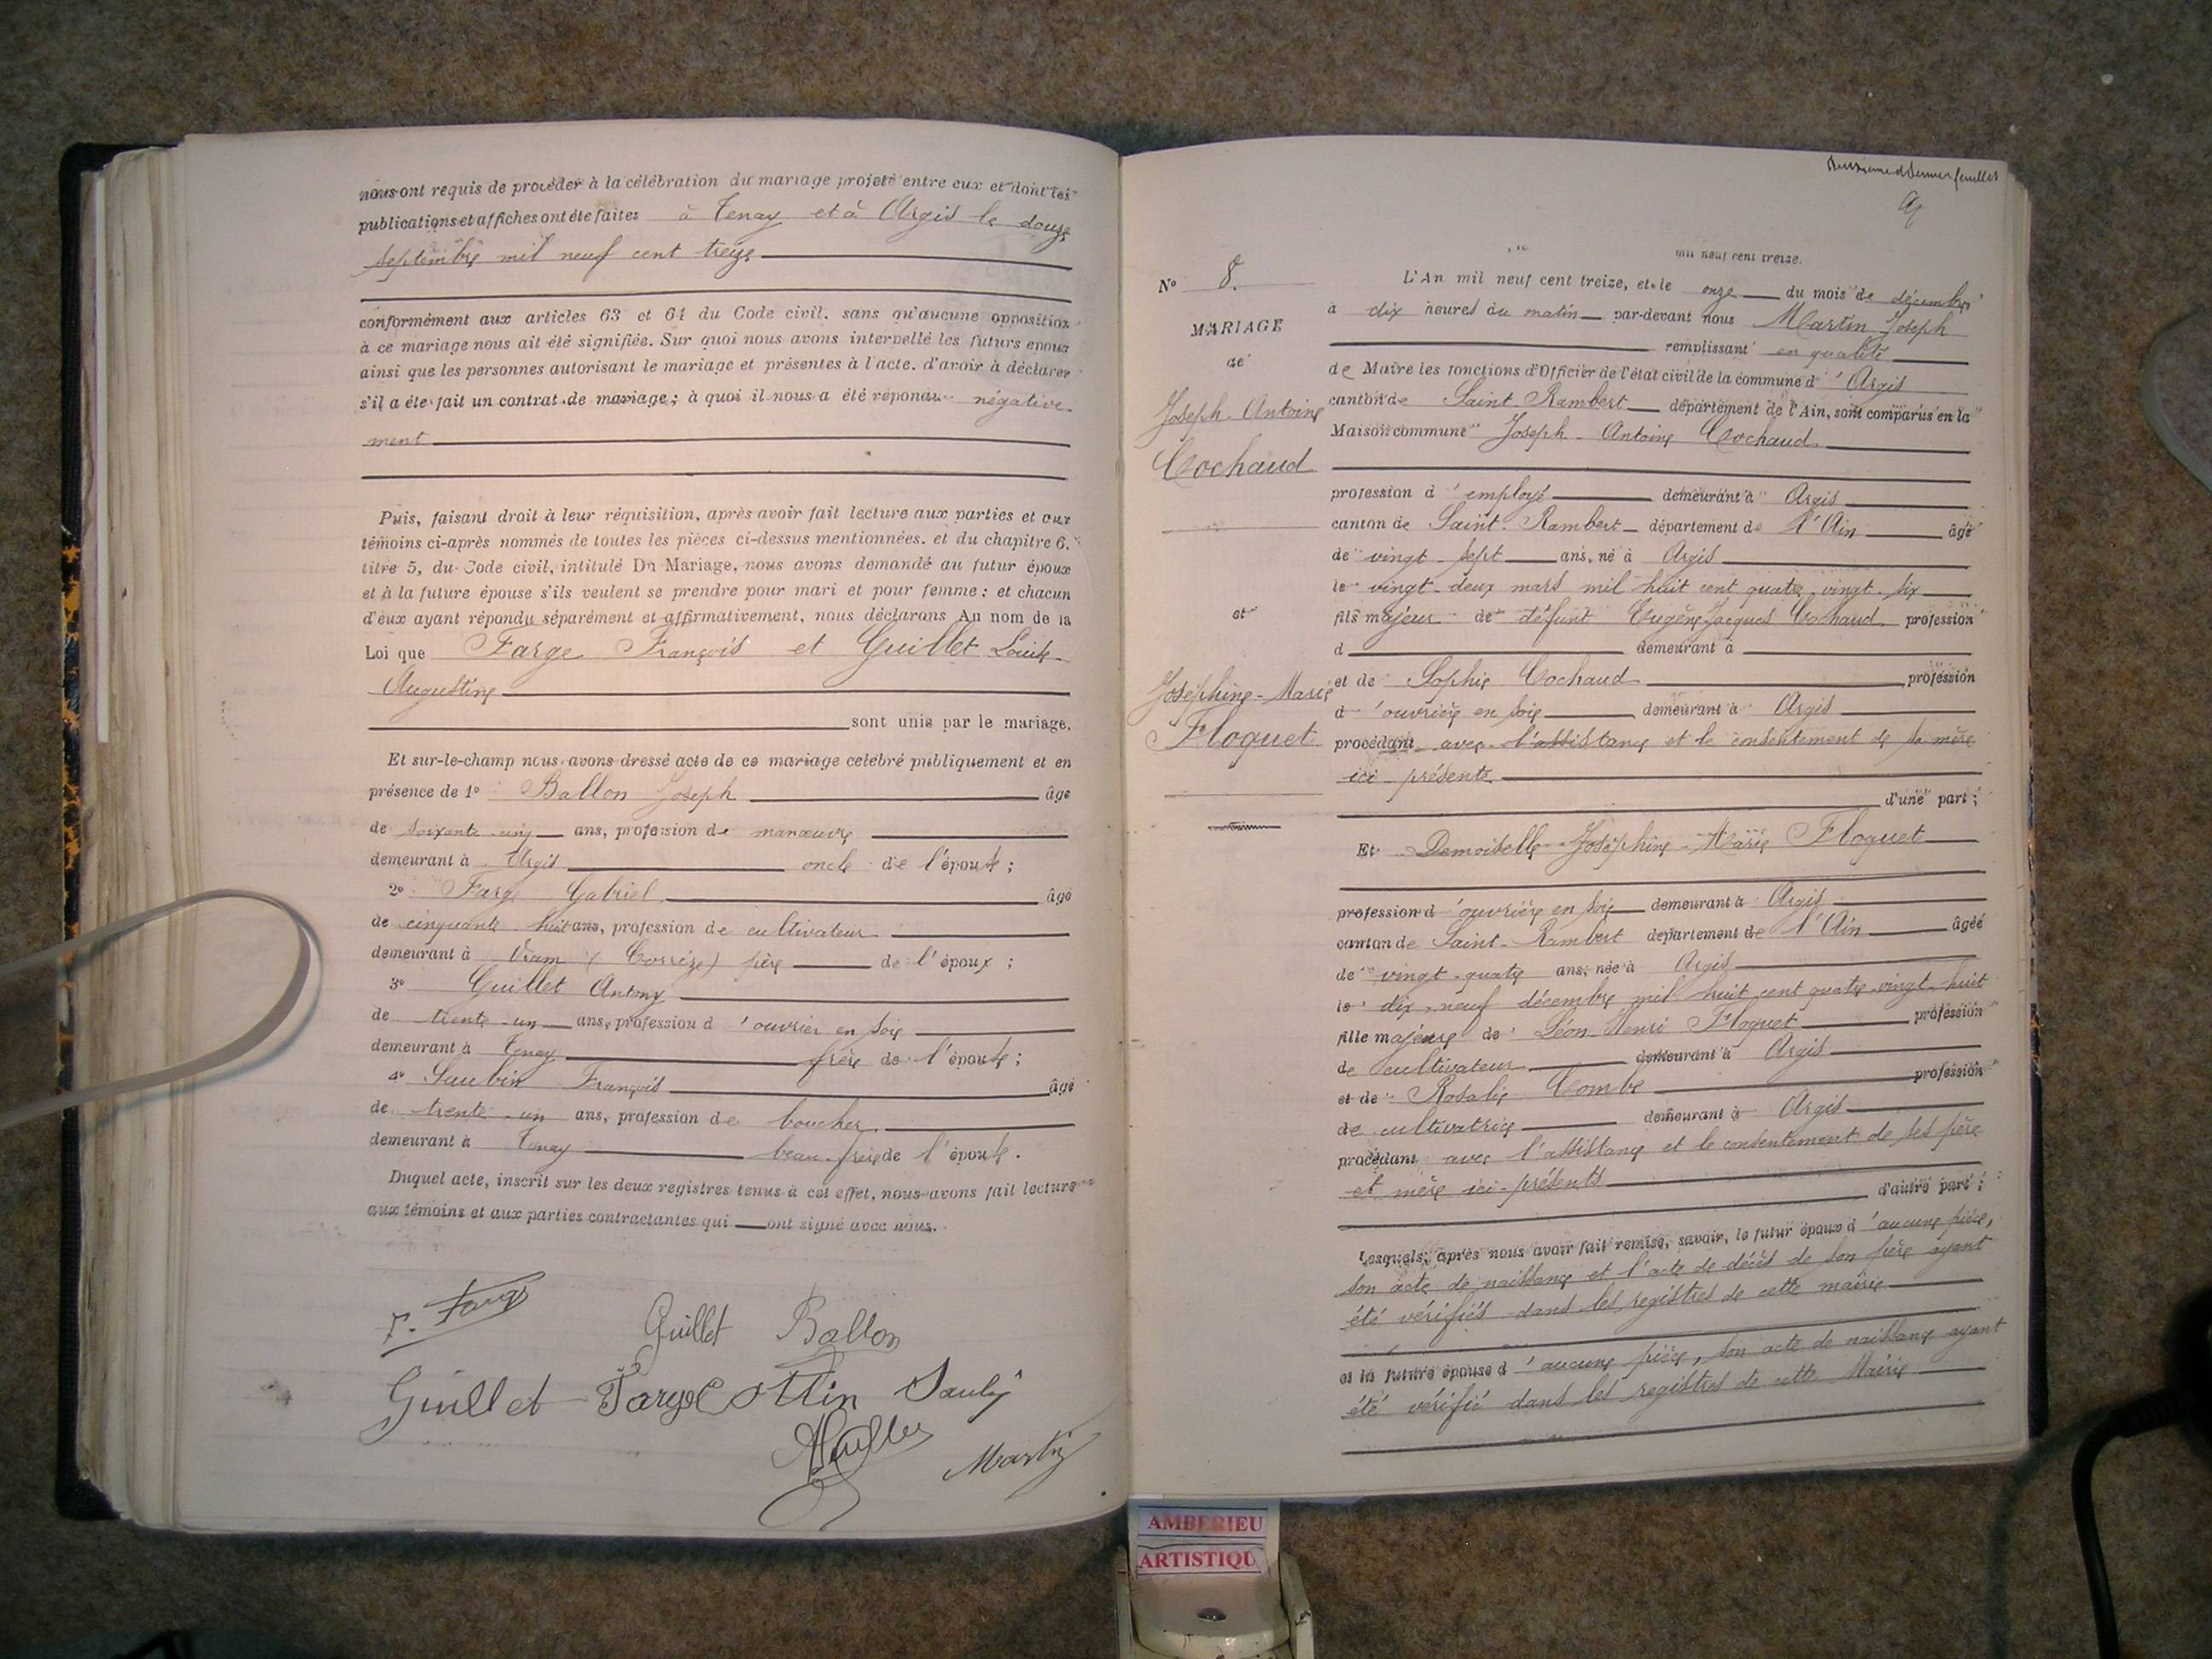 nous ont requis de procéder à la célébration du mariage projeté entre eux et dont les
publications et affiches ont été faites à Tenay et à Argis le douze
septembre mil neuf cent treize
conformément aux articles 63 et 64 du Code civil, sans qu'aucune opposition
à ce mariage nous ait été signifiée. Sur quoi nous avons interpellé les futurs époux
ainsi que les personnes autorisant le mariage et présentes à l'acte, d'avoir à déclarer
s'il a été fait un contrat de mariage ; à quoi il nous a été répondu négative-
ment
Puis, faisant droit à leur réquisition, après avoir fait lecture aux parties et aux
témoins ci-après nommés de toutes les pièces ci-dessus mentionnées. et du chapitre 6.
titre 5, du Code civil, intitulé Du Mariage, nous avons demandé au futur époux
et à la future épouse s'ils veulent se prendre pour mari et pour femme ; et chacun
d'eux ayant répondu séparément et affirmativement, nous déclarons Au nom de la
Loi que Farge François et Guillet Louise
Augustine
sont unis par le mariage.
Et sur-le-champ nous avons dressé acte de ce mariage célébré publiquement et en
présence de 1° Ballon Joseph âgé
de soixante-cinq ans, profession de manœuvre
demeurant à Argis oncle de l'épouse ;
2° Farge Gabriel âgé
de cinquante huit ans, profession de cultivateur
demeurant à (Corrèze) père de l'époux ;
3° Guillet Antony
de trente-un ans, profession d'ouvrier en soie
demeurant à Tenay frère de l'épouse ;
4° Saubin François âgé
de trente-un ans, profession de boucher.
demeurant à Tenay beau-frère de l'épouse.
Duquel acte, inscrit sur les deux registres tenus à cet effet, nous avons fait lecture
aux témoins et aux parties contractantes qui ont signé avec nous.
F. Farge
Guillet Ballon
Guillet Farge Cottin
Martin
feuillet
mil neuf cent treize.
N° 8.
MARIAGE
de
Joseph-Antoine
Cochaud
et
Joséphine-Marie
Floquet
L'An mil neuf cent treize, et le onze du mois de décembre
à dix heures du matin par-devant nous Martin Joseph
remplissant en qualité
de Maire les fonctions d'Officier de l'état civil de la commune d'Argis
canton de Saint-Rambert département de l'Ain, sont comparus en la
Maison commune Joseph-Antoine Cochaud
profession d'employé demeurant à Argis
canton de Saint-Rambert département de l'Ain âgé
de vingt-sept ans, né à Argis
le vingt-deux mars mil huit cent quatre-vingt-six
fils majeur de défunt Eugène Jacques Cochaud profession
d demeurant à
et de Sophie Cochaud profession
d'ouvrière en soie demeurant à Argis
procédant avec l'assistance et le consentement de sa mère
ici présente
d'une part ;
Et Demoiselle Joséphine-Marie Floquet
profession d'ouvrière en soie demeurant à Argis
canton de Saint-Rambert département de l'Ain âgée
de vingt-quatre ans, née à Argis
le dix-neuf décembre mil huit cent quatre-vingt-huit
fille majeure de Léon Henri Floquet profession
de cultivateur demeurant à Argis
et de Rosalie Combe profession
de cultivatrice demeurant à Argis
procédant avec l'assistance et le consentement de ses père
et mère ici présents
d'autre part ;
Lesquels, après nous avoir fait remise, savoir, le futur époux d'aucune pièce,
son acte de naissance et l'acte de décès de son père ayant
été vérifiés dans les registres de cette mairie
et la future épouse d'aucune pièce, son acte de naissance ayant
été vérifié dans les registres de cette Mairie
AMBERIEU
ARTISTIQU